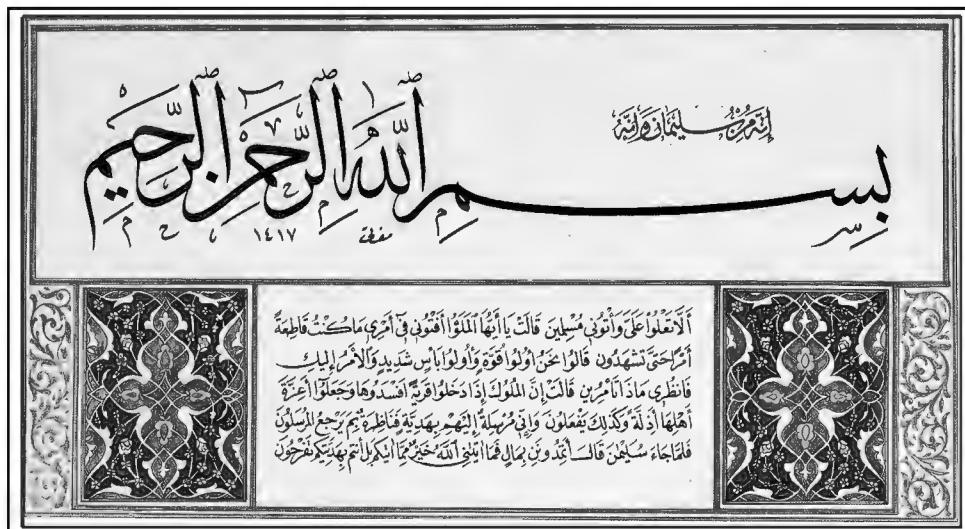 إنه من سليمان وإنه
بِسْمِ ٱللَّهِ ٱلرَّحْمَنِ ٱلرَّحِيمِ
١٤١٧
أَلَّا تَعْلُوا عَلَيَّ وَأْتُونِي مُسْلِمِينَ قَالَتْ يَا أَيُّهَا الْمَلَؤُا أَفْتُونِي فِي أَمْرِي مَا كُنْتُ قَاطِعَةً
أَمْرًا حَتَّى تَشْهَدُونِ قَالُوا نَحْنُ أُولُوا قُوَّةٍ وَأُولُوا بَأْسٍ شَدِيدٍ وَالْأَمْرُ إِلَيْكِ
فَانْظُرِي مَاذَا تَأْمُرِينَ قَالَتْ إِنَّ الْمُلُوكَ إِذَا دَخَلُوا قَرْيَةً أَفْسَدُوهَا وَجَعَلُوا أَعِزَّةَ
أَهْلِهَا أَذِلَّةً وَكَذَلِكَ يَفْعَلُونَ وَإِنِّي مُرْسِلَةٌ إِلَيْهِمْ بِهَدِيَّةٍ فَنَاظِرَةٌ بِمَ يَرْجِعُ الْمُرْسَلُونَ
فَلَمَّا جَاءَ سُلَيْمَنَ قَالَ أَتُمِدُّونَنِ بِمَالٍ فَمَا آتَنِيَ اللَّهُ خَيْرٌ مِمَّا آتَكُمْ بَلْ أَنْتُمْ بِهَدِيَّتِكُمْ تَفْرَحُونَ